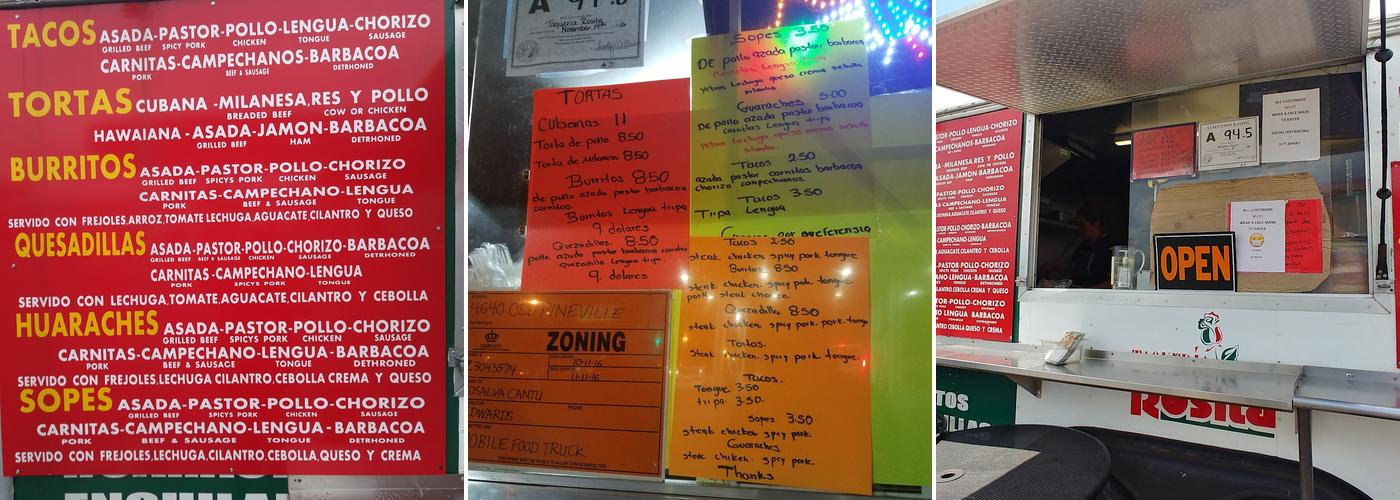 TACOS ASADA-PASTOR-POLLO-LENGUA-CHORIZO
GRILLED BEEF SPICY PORK CHICKEN TONGUE SAUSAGE
CARNITAS-CAMPECHANOS-BARBACOA
PORK BEEF & SAUSAGE DETRHONED
TORTAS CUBANA -MILANESA,RES Y POLLO
BREADED BEEF COW OR CHICKEN
HAWAIANA -ASADA-JAMON-BARBACOA
GRILLED BEEF HAM DETRHONED
BURRITOS ASADA-PASTOR-POLLO-CHORIZO
GRILLED BEEF SPICYS PORK CHICKEN SAUSAGE
CARNITAS-CAMPECHANO-LENGUA
PORK BEEF & SAUSAGE TONGUE
SERVIDO CON FREJOLES,ARROZ,TOMATE LECHUGA,AGUACATE,CILANTRO Y QUESO
QUESADILLAS ASADA-PASTOR-POLLO-CHORIZO-BARBACOA
GRILLED BEEF SPICYS PORK CHICKEN SAUSAGE DETHRONED
CARNITAS-CAMPECHANO-LENGUA
PORK BEEF & SAUSAGE TONGUE
SERVIDO CON LECHUGA,TOMATE,AGUACATE,CILANTRO Y CEBOLLA
HUARACHES ASADA-PASTOR-POLLO-CHORIZO
GRILLED BEEF SPICYS PORK CHICKEN SAUSAGE
CARNITAS-CAMPECHANO-LENGUA-BARBACOA
PORK BEEF & SAUSAGE TONGUE DETHRONED
SERVIDO CON FREJOLES,LECHUGA CILANTRO,CEBOLLA CREMA Y QUESO
SOPES ASADA-PASTOR-POLLO-CHORIZO
GRILLED BEEF SPICYS PORK CHICKEN SAUSAGE
CARNITAS-CAMPECHANO-LENGUA-BARBACOA
PORK BEEF & SAUSAGE TONGUE DETHRONED
SERVIDO CON FREJOLES,LECHUGA,CILANTRO,CEBOLLA,QUESO Y CREMA
A
Taqueria Rosita
TORTAS
Cubanas 11
Torta de pollo 8.50
Torta de Milanesa 8.50
Burritos 8.50
de pollo azada pastor barbacoa
carnitas
Burritos Lengua tripa
9 dolares
Quezadillas. 8.50
de pollo azada pastor barbacoa carnitas
Quezadilla Lengua tripa
9. dolares
4640 OLD PINEVILLE
ZONING
10-11-16
11-11-16
ROSALVA CANTU
PHONE:
EDWARDS
MOBILE FOOD TRUCK
Sopes 3.50
DE pollo azada pastor barbacoa
Carnitas Lengua
Lechuga queso crema sebolla
silantro
Guaraches 5.00
De pollo azada pastor barbacoa
carnitas Lengua tripa
Lechuga queso crema sebolla
silantro.
Tacos 2.50
azada pastor carnitas barbacoa
chorizo campechanos
Tacos 3.50
Tripa Lengua
Tacos 2.50
steak chicken spicy pork tongue
Burritos 8.50
steak chicken spicy pork. tongue.
pork. steak chorizo.
Quezadilla 8.50
steak chicken spicy pork. pork. tongue
Tortas.
steak chicken. spicy pork. tongue.
Tacos.
Tongue 3.50
tripa. 3.50.
sopes 3.50
steak chicken spicy pork.
Guaraches
steak chicken. spicy pork.
Thanks
A 94.5
ALL CUSTOMERS
MUST
WEAR A FACE MASK
TO ENTER
SOCIAL DISTANCING
6 FT APART
ALL CUSTOMERS
MUST
WEAR A FACE MASK
TO ENTER
OPEN
Rosita